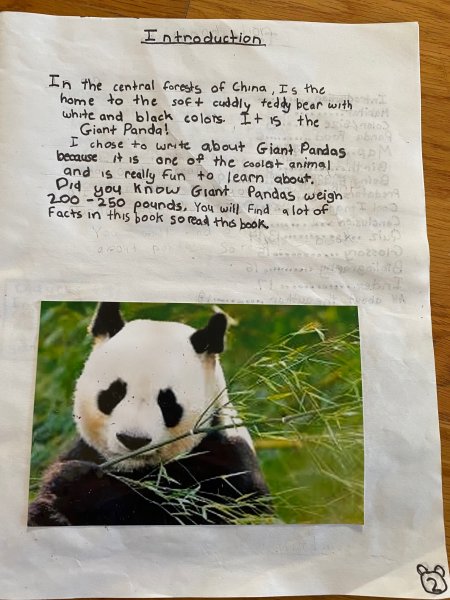 Introduction
In the central forests of China, Is the
home to the soft cuddly teddy bear with
white and black colors. It is the
Giant Panda!
I chose to write about Giant Pandas
because it is one of the coolest animal
and is really fun to learn about.
Did you know Giant Pandas weigh
200-250 pounds. You will find alot of
Facts in this book so read this book.
2